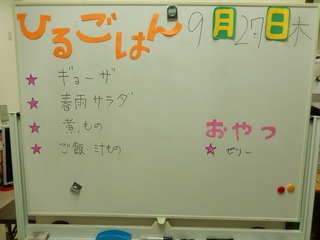 ひるごはん 9月27日 木
ギョーザ
春雨サラダ
煮もの
ご飯・汁もの
おやつ
ゼリー